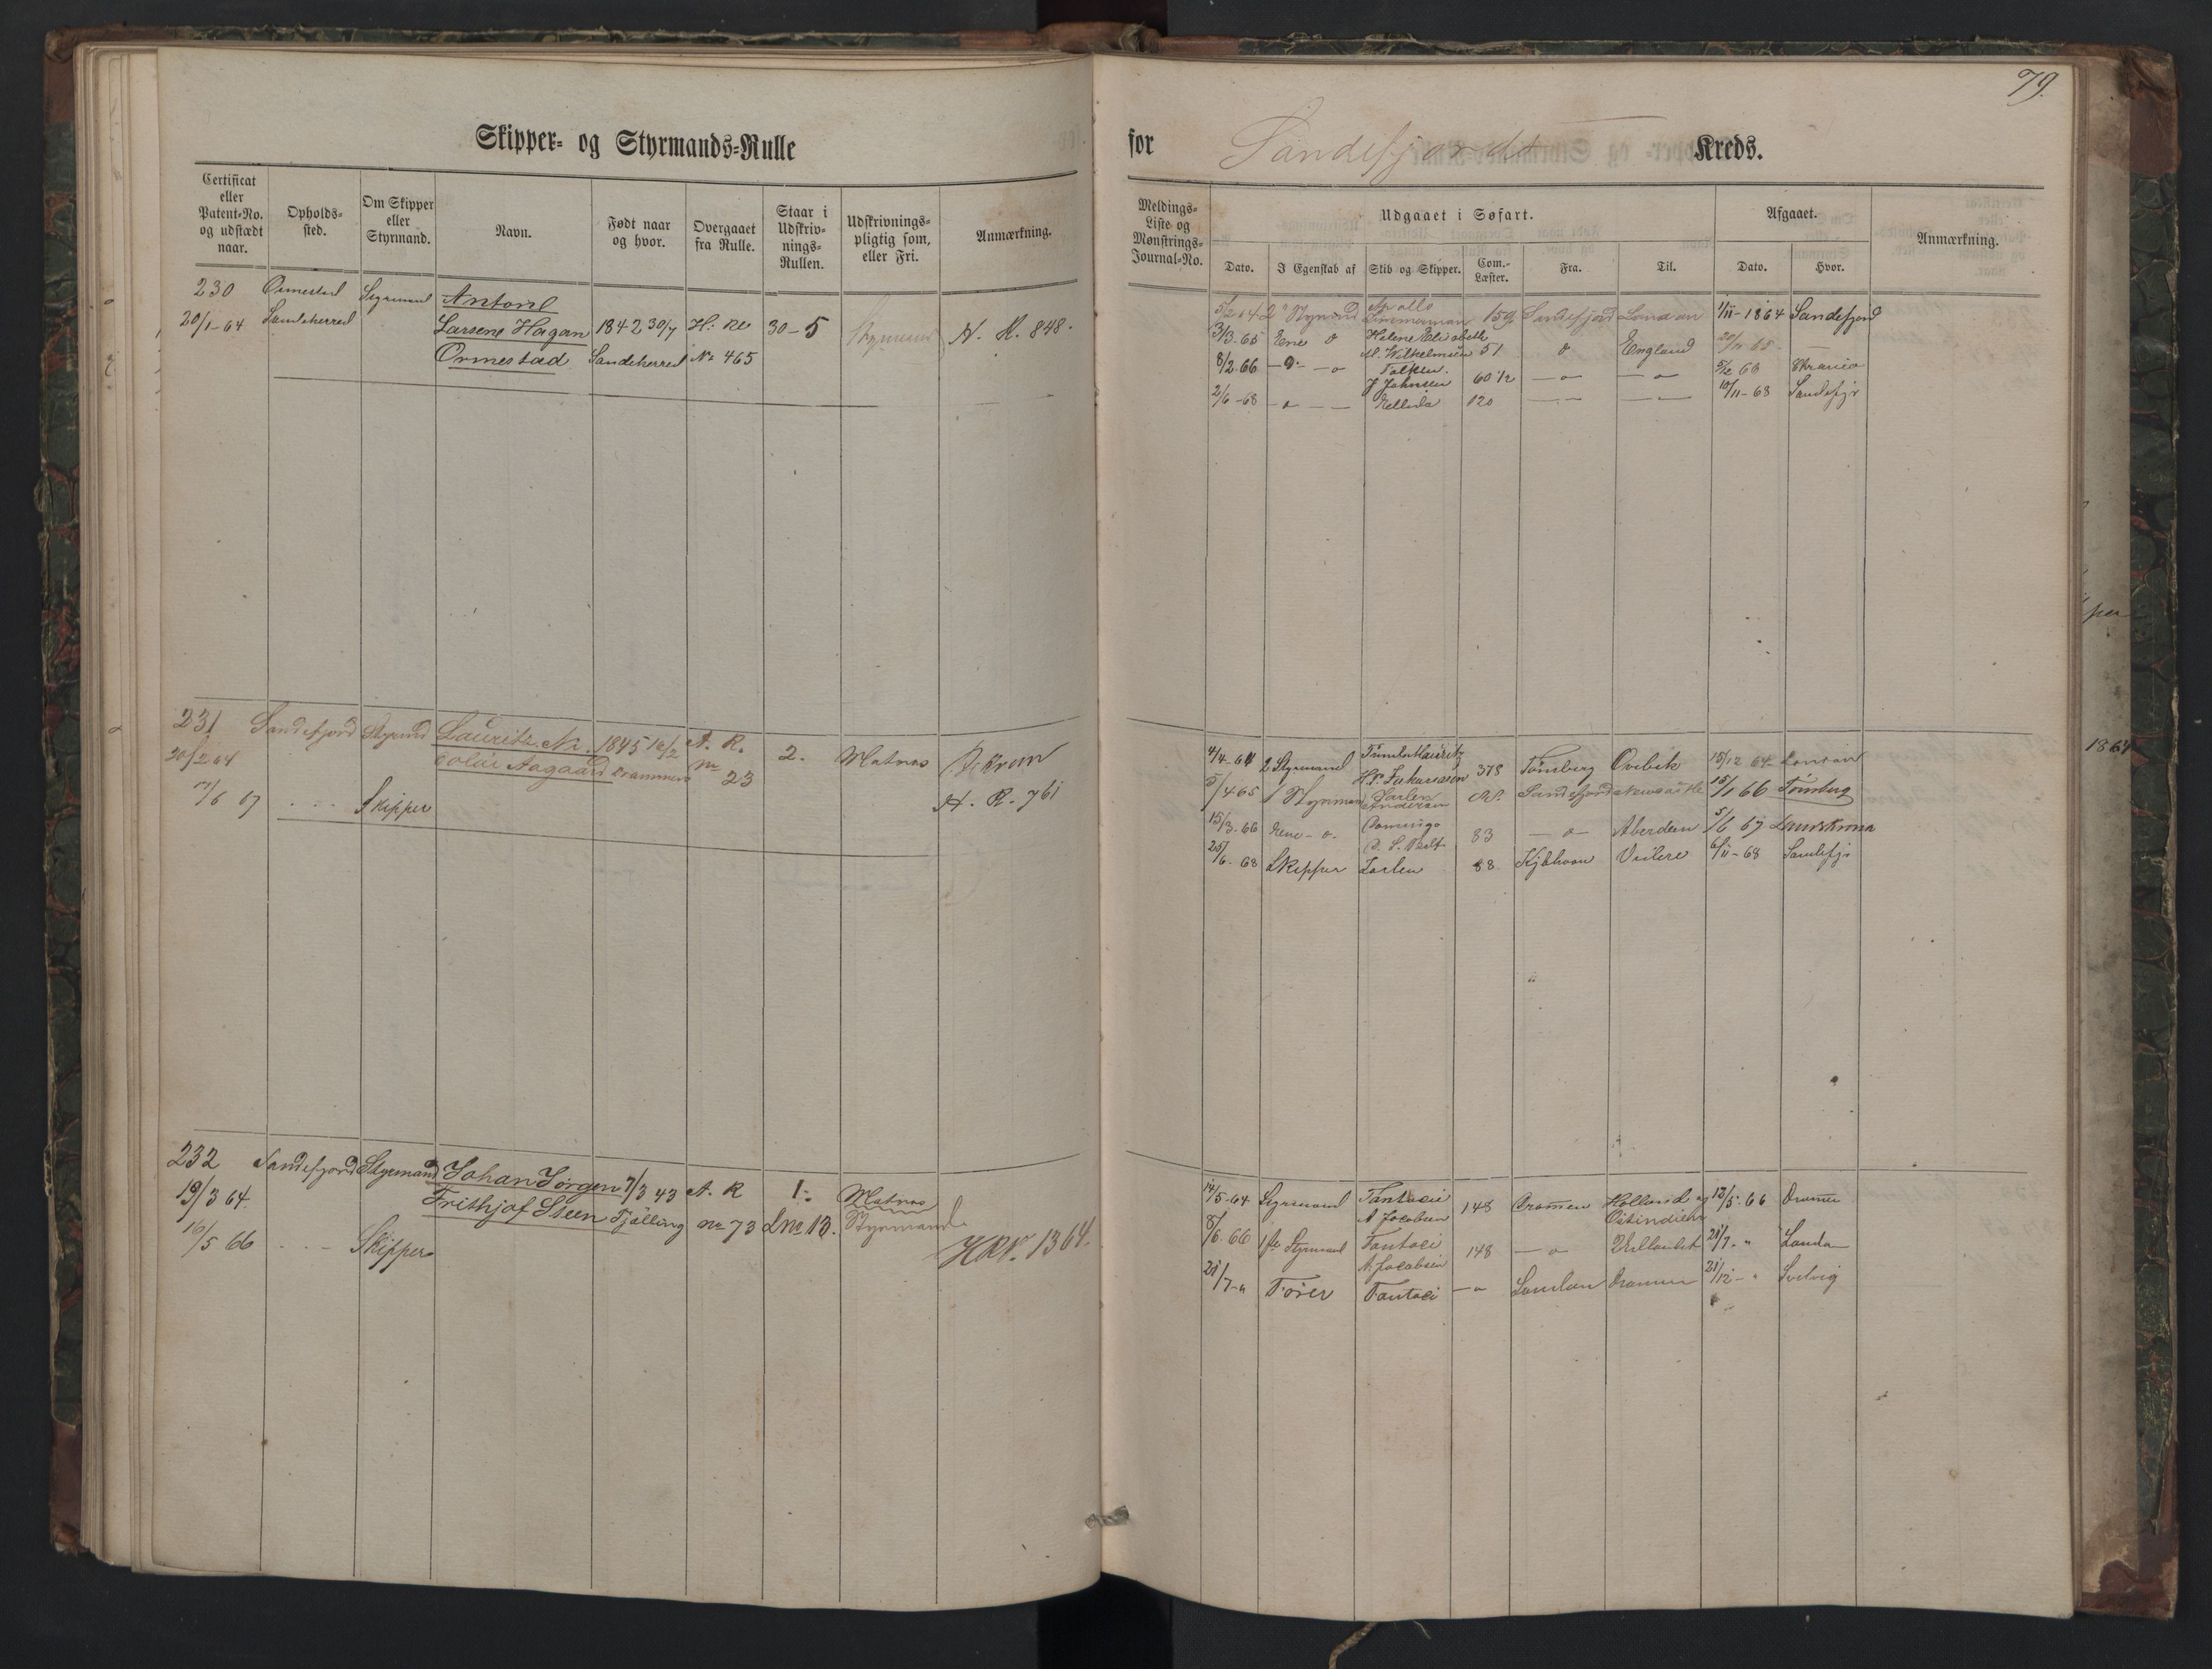 79.
Skipper- og Styrmands-Rulle
for Sandefjords Kreds.
Certificat eller Patent-No. og udstædt naar.
Opholds-sted.
Om Skipper eller Styrmand.
Navn.
Født naar og hvor.
Overgaaet fra Rulle.
Staar i Udskriv-nings-Rullen.
Udskrivnings-pligtig som, eller Fri.
Anmærkning.
Meldings-Liste og Mønstrings-Journal-No.
Udgaaet i Søfart.
Afgaaet.
Anmærkning.
Dato. I Egenskab af Skib og Skipper. Com.-Læster. Fra. Til. Dato. Hvor.
230 Ormestad Styrmand Antoni
20/1-64 Sandeherred Larsene Hagan 1842 30/7 H: Re 30-5 Styrmand H. R. 848.
Ormestad Sandeherred No 465
5/2 64 2 Styrmd Apollo 159 Sandefjord London 1/11-1864 Sandefjord
3/3.65 Ene Helene Elisabeth
M. Wilhelmsen 51 England 20/11 65
8/2.66 60 1/2 5/12 66
J Johnsen
2/6-68 120 10/11-68 Sandefj
231 Sandefjord Styrmd Lauritz Ni- 1845 16/2 A. R. 2. Matros
20/2 64 colai Aagaard Drammen No 23
7/6 67 Skipper H. R. 761
4/4-64 2 Styrmand 378 Tønsberg 15/12 64 London
5/4 65 1 Styrmand Sandefjord Newcastle 15/1 66 Tønsberg
Andersen
15/3.66 Domingo 83 Aberdeen 5/6 67
25/6.68 Skipper 88 6/11-68 Sandefj
232 Sandefjord Styrmand Johan Jørgen 7/3 43 A. R 1. Matros
19/3 64. Frithjof Steen Tjølling No 73 L No 13. Styrmand
16/5 66 Skipper HRN. 1364.
14/5-64 Styrmand Fantasi 148 Dramen Holland og 13/5.66 Dramen
A Jacobsen Ostindien
8/6.66 1ste Styrmand Fantasi 148 21/7. "
A. Jacobsen
21/7- " Fører Fantasi London Dramen 21/12- " Svelvig